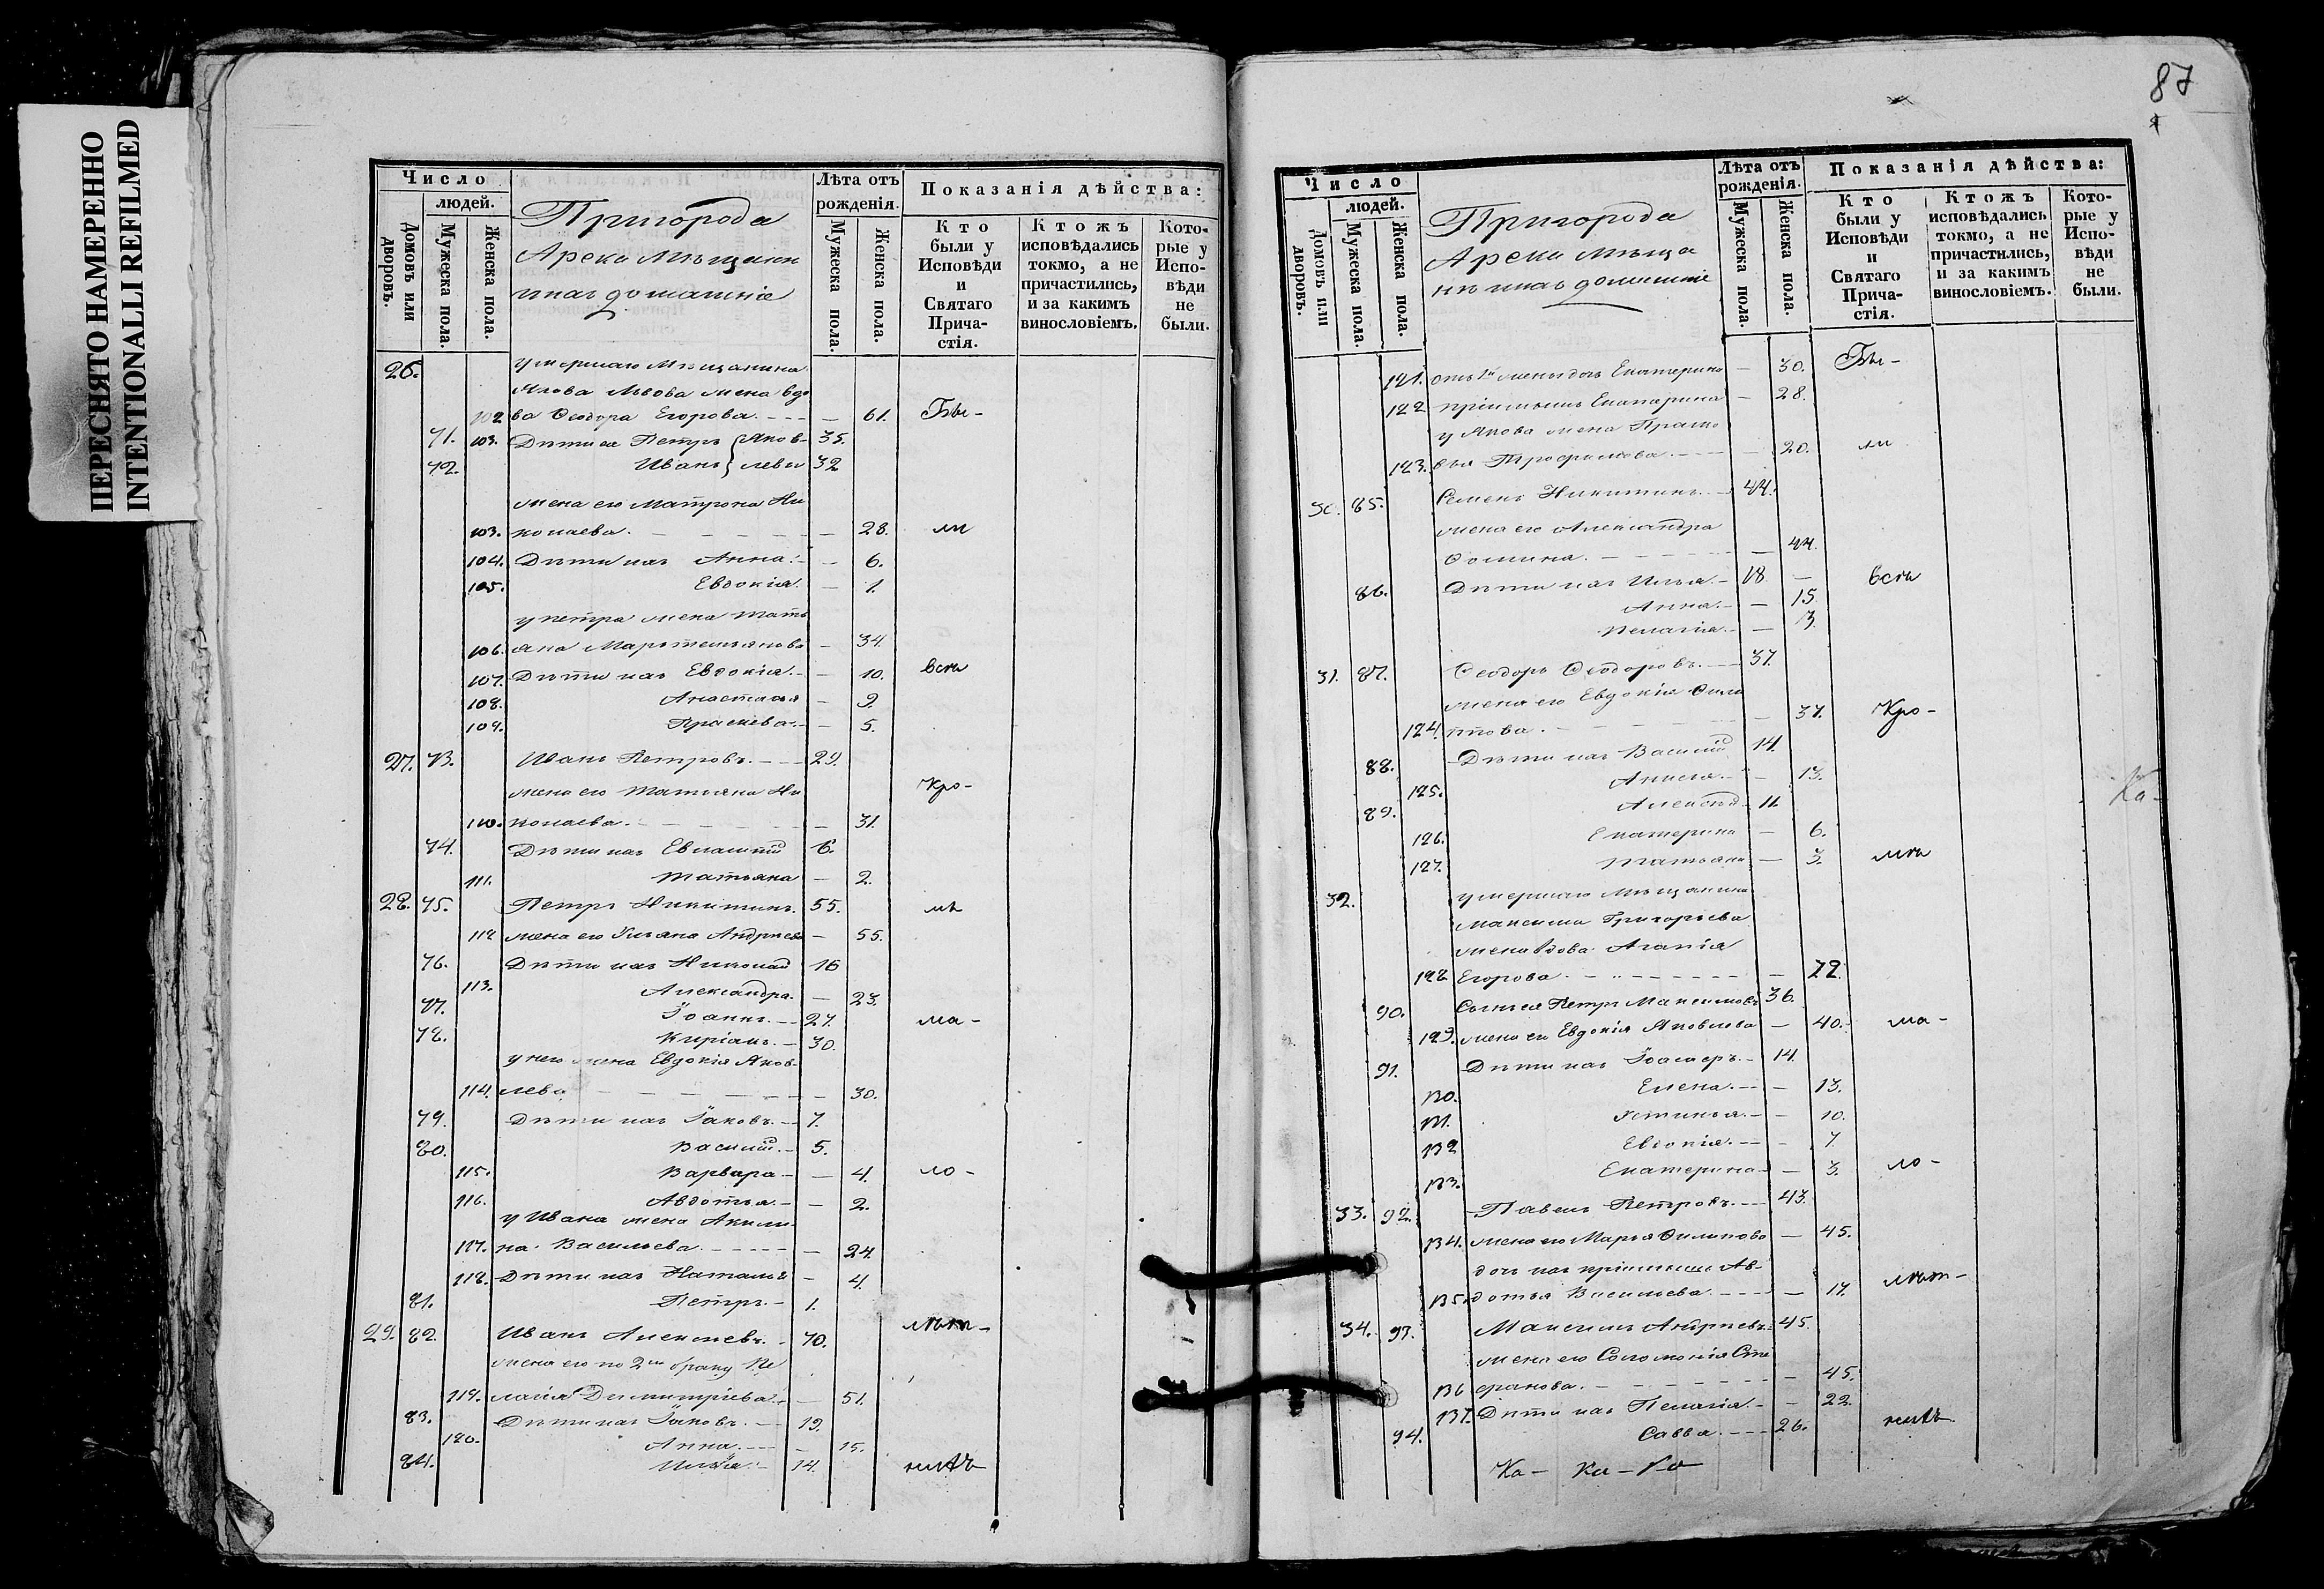 ПЕРЕСНЯТО НАМЕРЕННО
INTENTIONALLI REFILMED
Число
людей.
Домовъ или дворовъ.
Мужеска пола.
Женска пола.
Пригорода
Арска Мѣщани
и ихъ домашніе
Лѣта отъ рожденія.
Мужеска пола.
Женска пола.
Показанія дѣйства:
Кто были у Исповѣди и Святаго Причастія.
Ктожъ исповѣдались токмо, а не причастились, и за какимъ винословіемъ.
Которые у Исповѣди не были.
26. умершаго Мѣщанина
Львова жена вдо
102 ва Ѳеодора Егорова. — 61. Бы-
71. 103. Дѣти ея Петръ Яков- 35.
72. Иванъ левы 32
жена его Матрона Ни
103. колаева. — 28. ли
104. Дѣти ихъ Анна. — 6.
105. Евдокія. — 1.
у Петра жена Тать
106. яна — 34.
107. Дѣти ихъ Евдокія. — 10. всѣ
108. Анастасья — 9.
109. Праскева. — 5.
27. 73. Иванъ Петровъ. — 29.
жена его Татьяна Ни Кро-
110. колаева. — 31.
74. Дѣти ихъ 6.
111. Татьяна — 2.
28. 75. Петръ Никитинъ. 55. мѣ
112 жена его Андрѣева — 55.
76. Дѣти ихъ Николай 16
113. Александра. — 23.
77. Іоаннъ. — 27. ма-
78. Киріакъ. — 30.
у него жена Евдокія Яков-
114. лева — 30.
79. Дѣти ихъ Іаковъ. — 7.
80. Василій. — 5.
115. Варвара — 4. ло-
116. Авдотья. — 2.
у Ивана жена Акили
117. на Васильева. — 24.
118. Дѣти ихъ Наталья — 4.
81. Петръ. — 1.
29. 82. Иванъ Алексѣевъ. — 70. лѣт-
жена его по 2му браку Пе
119. лагія Димитріева. — 51.
83. Дѣти ихъ Іаковъ. — 19.
120. Анна. — 15.
84. Илья. — 14. нихъ
87
Число
людей.
Домовъ или дворовъ.
Мужеска пола.
Женска пола.
Пригорода
Арска Мѣща
не и ихъ домашніе
Лѣта отъ рожденія.
Мужеска пола.
Женска пола.
Показанія дѣйства:
Кто были у Исповѣди и Святаго Причастія.
Ктожъ исповѣдались токмо, а не причастились, и за какимъ винословіемъ.
Которые у Исповѣди не были.
121. отъ 1й жены дочь Екатерина — 30. Бы-
122 пріемышъ Екатерина — 28.
у Якова жена Праско
123. вья Трофимова. — 20. ли
30. 85. Семенъ Никитинъ. — 44.
жена его Александра
Ѳомина. — 44.
86. Дѣти ихъ Илья. — 18. — всѣ
Анна. — 15.
Пелагія. — 3.
31. 87. Ѳеодоръ Ѳеодоровъ. — 37.
жена его Евдокія Фили
124. ппова. — 37. Кро-
88. Дѣти ихъ Василій 14.
125. — 13.
89. Александ 11.
126. Екатерина — 6.
127. Татьяна — 3. мѣ
Ка-
32. умершаго мѣщанина
Максима Григорьева
жена вдова Агапія
128 Егорова. — 72.
90. Сынъ ея Петръ Максимовъ 36.
129. жена его Евдокія Яковлева — 40. ма-
91. Дѣти ихъ Іоасафъ. — 14.
130. Елена. — 13.
131. Устинья. — 10.
132 Евдокія. — 7.
133. Екатерина — 3. ло-
33. 92. Павелъ Петровъ. — 43.
134. жена его Марья Филипова — 45.
дочь ихъ пріемышъ Ав-
135. дотья Васильева. — 17. лѣт-
34. 93. Максимъ Андрѣевъ. 45.
жена его Соломонія Сте
136 фанова. — 45.
137. Дѣти ихъ Пелагія. — 22.
94. Савва. — 26. нихъ
Ка- Ка-